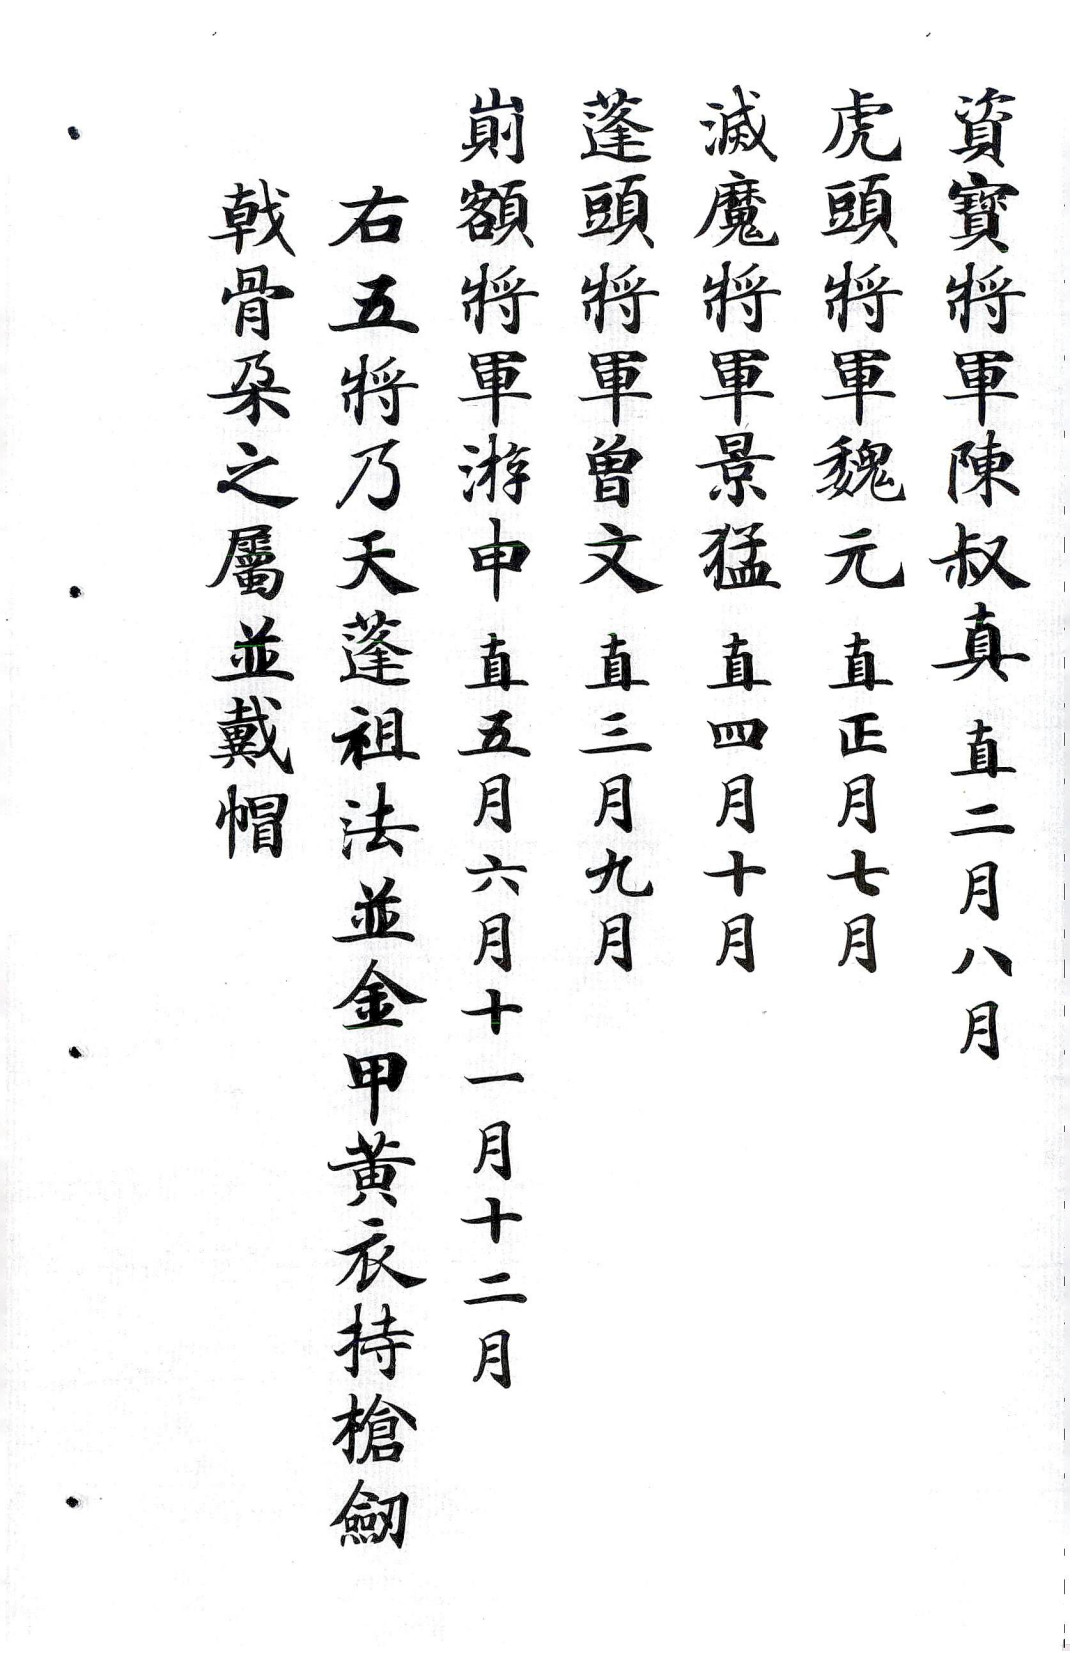 資寶將軍陳叔真 直二月八月
虎頭將軍魏元 直正月七月
滅魔將軍景猛 直四月十月
蓬頭將軍曾文 直三月九月
崱額將軍游申 直五月六月十一月十二月
右五將乃天蓬祖法並金甲黃衣持槍劒
戟骨朶之屬並戴帽